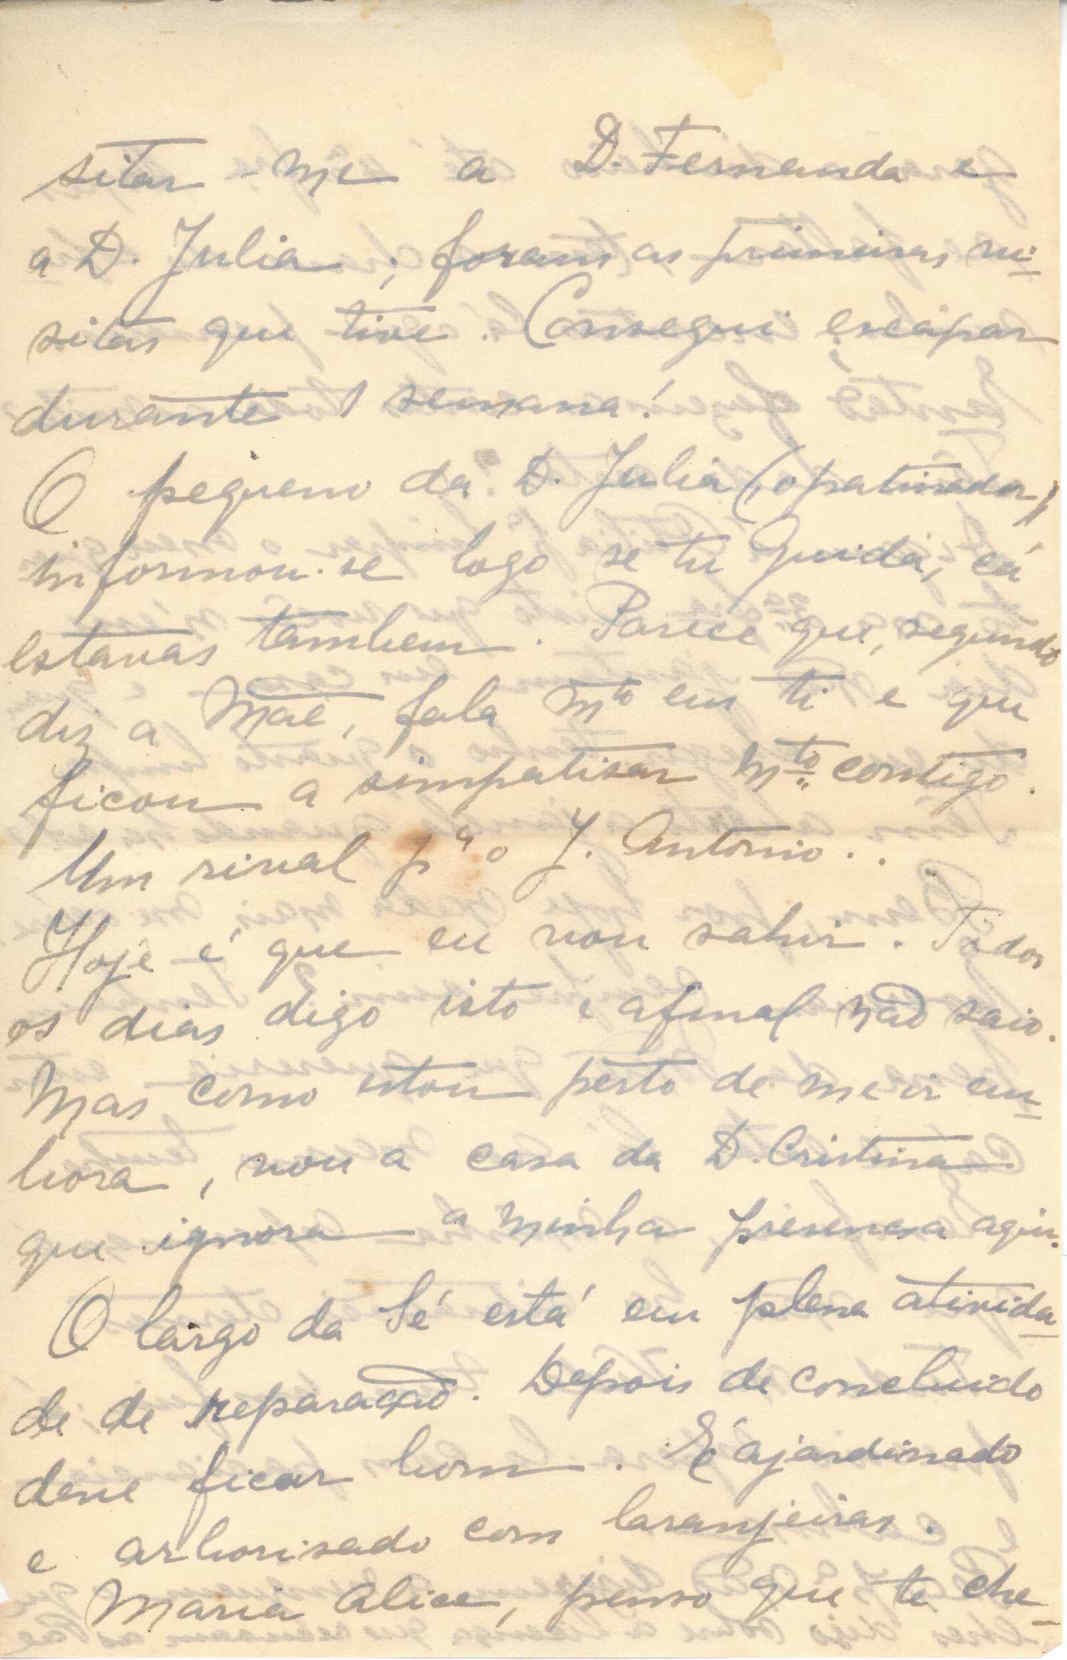 sitar-me a D. Fernanda e
a D. Julia; foram as primeiras vi-
sitas que tive. Consegui escapar
durante 1 semana!
O pequeno da D. Julia (o patinador)
informou-se logo se tu Guida, cá
estavas tambem. Parece que, segundo
diz a Mãe, fala mto em ti e que
ficou a simpatisar mto contigo.
Um rival pa o J. Antonio..
Hoje é que eu vou sahir. Todos
os dias digo isto e afinal não saio.
Mas como estou perto de me ir em-
bora, vou a casa da D. Cristina
que ignora a minha presença aqui.
O largo da Sé está em plena ativida-
de de reparação. Depois de concluido
deve ficar bom. É ajardinado
e arborisado com laranjeiras.
Maria Alice, penso que te che-